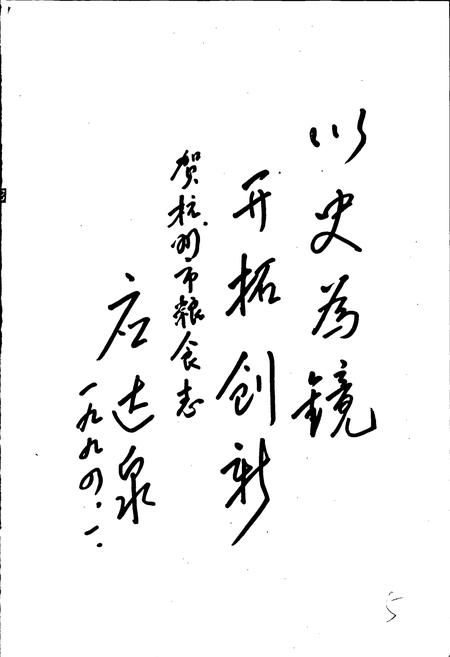 以史为镜
开拓创新
贺杭州市粮食志
应达泉
一九九四.一.
5